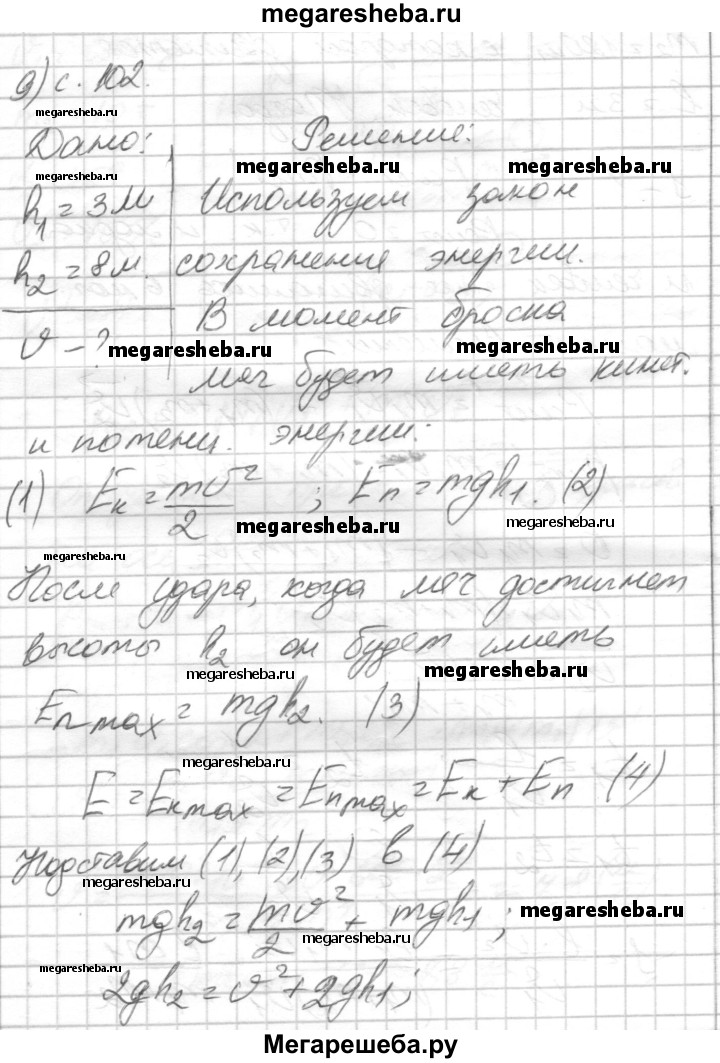 megaresheba.ru
9) с. 102.
megaresheba.ru
Дано: Решение:
megaresheba.ru megaresheba.ru
megaresheba.ru
h₁ = 3 м Используем закон
h₂ = 8 м. сохранение энергии.
В момент броска
v - ? megaresheba.ru megaresheba.ru
мяч будет иметь кинет.
и потенц. энергии:
(1) Eк = mv²/2 ; Eп = mgh₁. (2)
megaresheba.ru megaresheba.ru
megaresheba.ru
После удара, когда мяч достигнет
высоты h₂ он будет иметь
megaresheba.ru megaresheba.ru
Eп max = mgh₂. (3)
megaresheba.ru
E = Eк max = Eп max = Eк + Eп (4)
Подставим (1), (2), (3) в (4)
megaresheba.ru
mgh₂ = mv²/2 + mgh₁ ; megaresheba.ru
megaresheba.ru
megaresheba.ru
2gh₂ = v² + 2gh₁ ;
Мегарешеба.ру